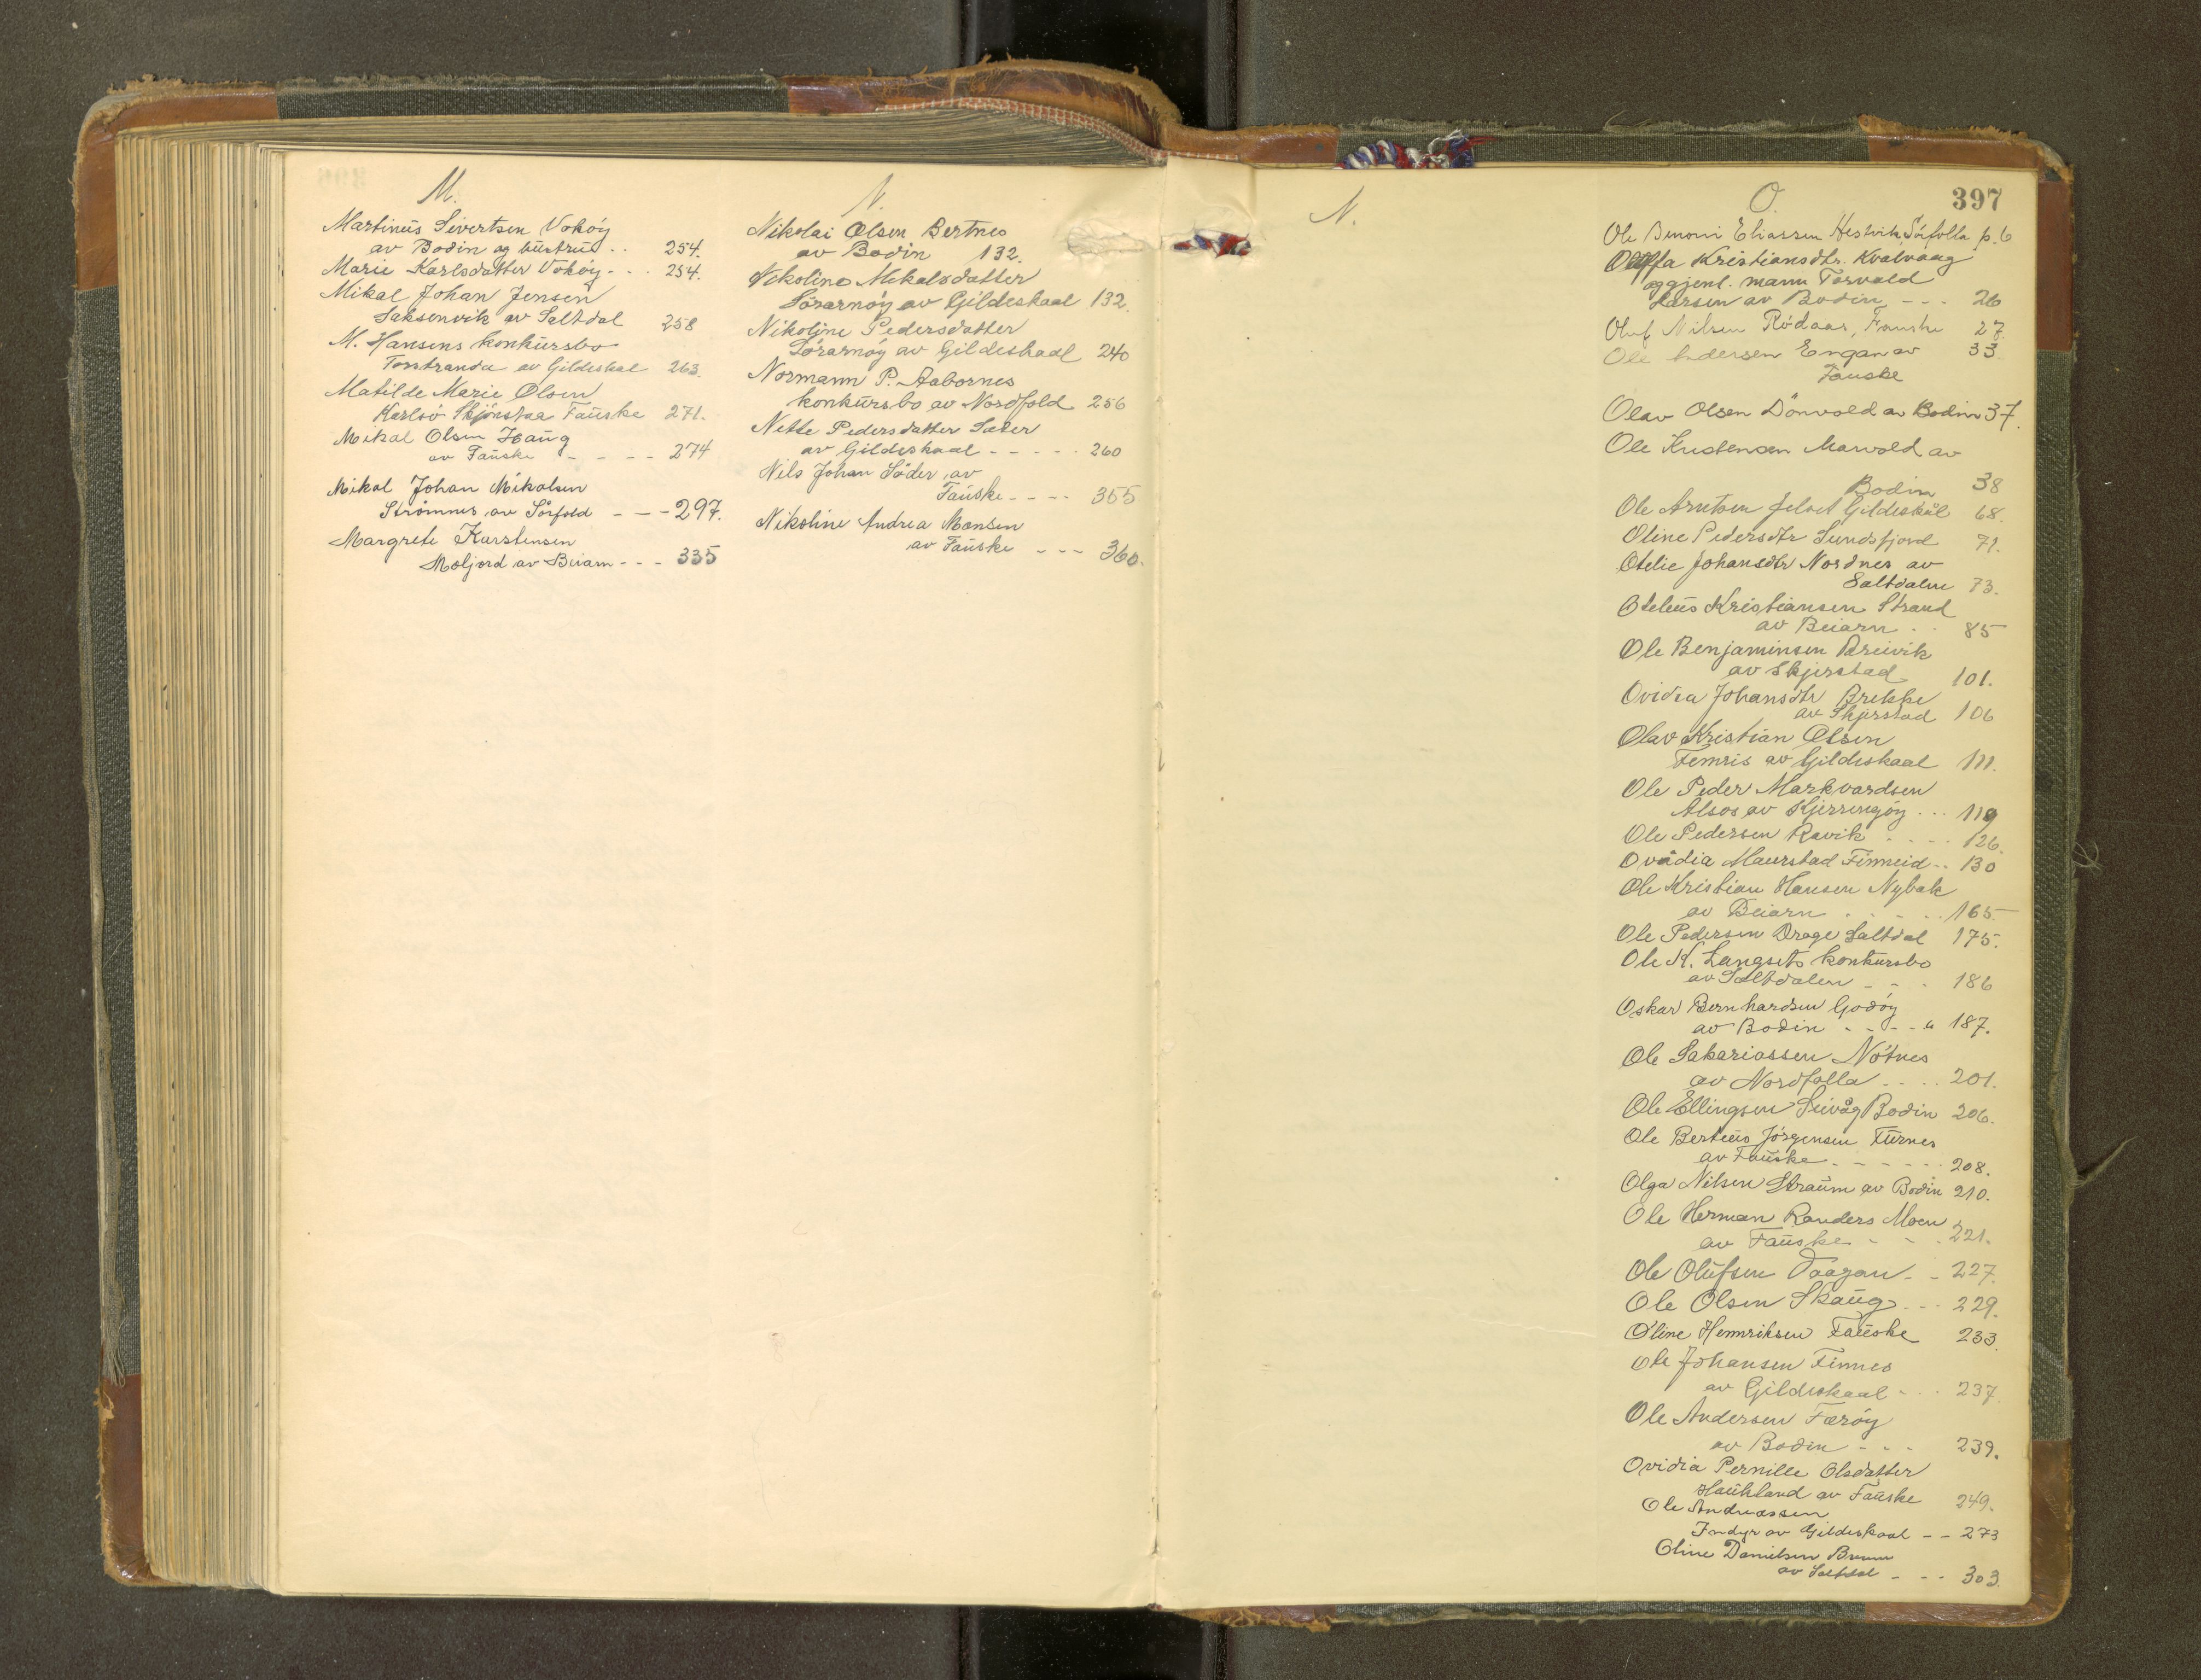 M.
Martinus Sivertsen Vokøy
av Bodin og hustru . . 254.
Marie Karlsdatter Vokøy - . . 254.
Mikal Johan Jensen
Saksenvik av Saltdal 258
M. Hansens konkursbo
Forstranda av Gildeskal 263.
Matilde Marie Olsen
Karlsö Skjönstaa Fauske 271.
Mikal Olsen Haug
av Fauske - - - - 274
Mikal Johan Mikalsen
Strömnes av Sörfold - - - 297.
Margrete Karstensen
Moljord av Beiarn - - - 335
N.
Nikolai Olsen Bertnes
av Bodin 132.
Nikoline Mikalsdatter
Sörarnöy av Gildeskaal 132.
Nikoline Pedersdatter
Sörarnöy av Gildeskaal 240
Normann P. Aabornes
konkursbo av Nordfold 256
Nette Pedersdatter Sæter
av Gildeskaal - - - - - 260
Nils Johan Söder av
Fauske - - - - 355
Nikoline Andrea Monsen
av Fauske - - - 360.
N.
O.
397
Ole Benoni Eliassen Hestvik, Sörfolla p. 6
Kristiansdtr. Kvalvaag
og gjenl. mann Torvald
Larsen av Bodin - - - 26
Oluf Nilsen Rödaas, Fauske 27.
Ole Andersen Engan av 33
Fauske
Olav Olsen Lönvold av Bodin 37.
Ole Kristensen Marvold av
Bodin 38
Ole Arntsen Gildeskål 68.
Oline Pedersdtr Sundsfjord 71.
Otelie Johansdtr Nordnes av
Saltdalen 73.
Oteleus Kristiansen Strand
av Beiarn . . 85
Ole Benjaminsen Breivik
av Skjerstad 101.
Ovidia Johansdtr Brekke
av Skjerstad 106
Olav Kristian Olsen
Femris av Gildeskaal 111.
Ole Peder Markvardsen
Alsos av Kjerringöy . . . 119
Ole Pedersen Ravik . - - - 126.
Ovidia Maurstad Finneid - - 130
Ole Kristian Hansen Nybak
av Beiarn . . . . . 165.
Ole Pedersen Drage Saltdal 175.
Ole K. Langsets konkursbo
av Saltdalen - - . 186
Oskar Bernhardsen Godöy
av Bodin - - - - " 187.
Ole Sakariassen Nötnes
av Nordfolla . . . . 201.
Ole Ellingsen Seivåg Bodin 206.
Ole Berteus Jörgensen Furnes
av Fauske - - - - - - 208.
Olga Nilsen Straum av Bodin 210.
Ole Herman Randers Moen
av Fauske - - . 221.
Ole Olufsen Vaagan - - 227.
Ole Olsen Skaug . - - 229.
Oline Hennriksen Fauske 233.
Ole Johansen Finnes
av Gildeskaal - . . 237.
Ole Andersen Færöy
av Bodin - - - 239.
Ovidia Pernille Olsdatter
Haukland av Fauske 249.
Ole Andreassen
Indyr av Gildeskaal - - 273
Oline Danielsen
av Saltdal - - - 303.